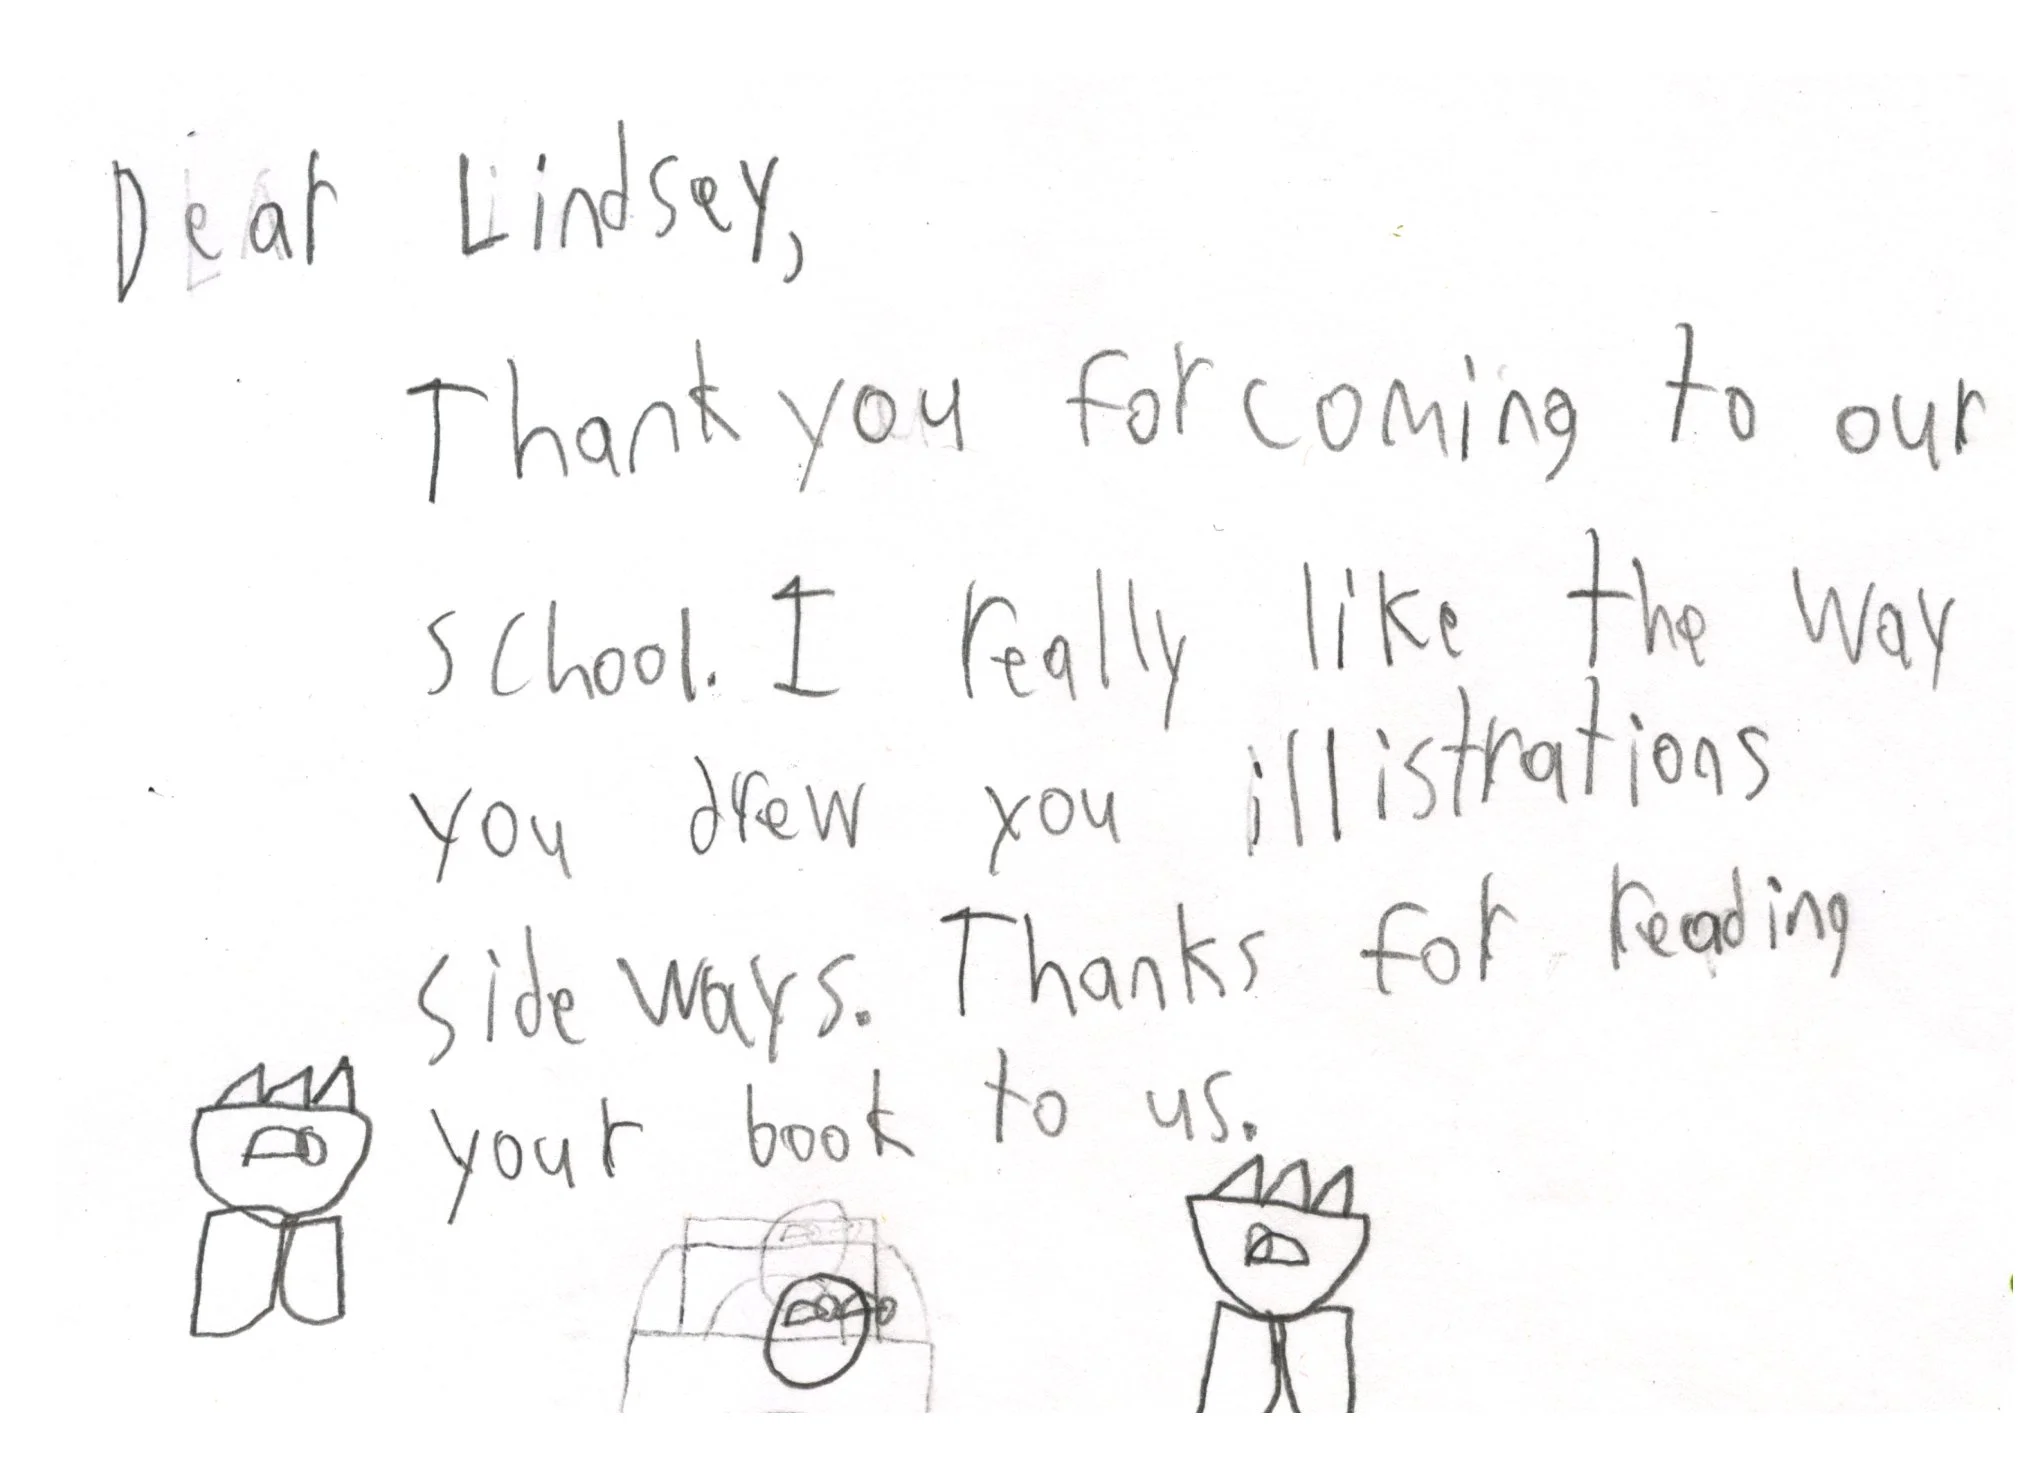 Dear Lindsey,
Thank you for coming to our
school. I really like the way
you drew you illistrations
side ways. Thanks for reading
your book to us.